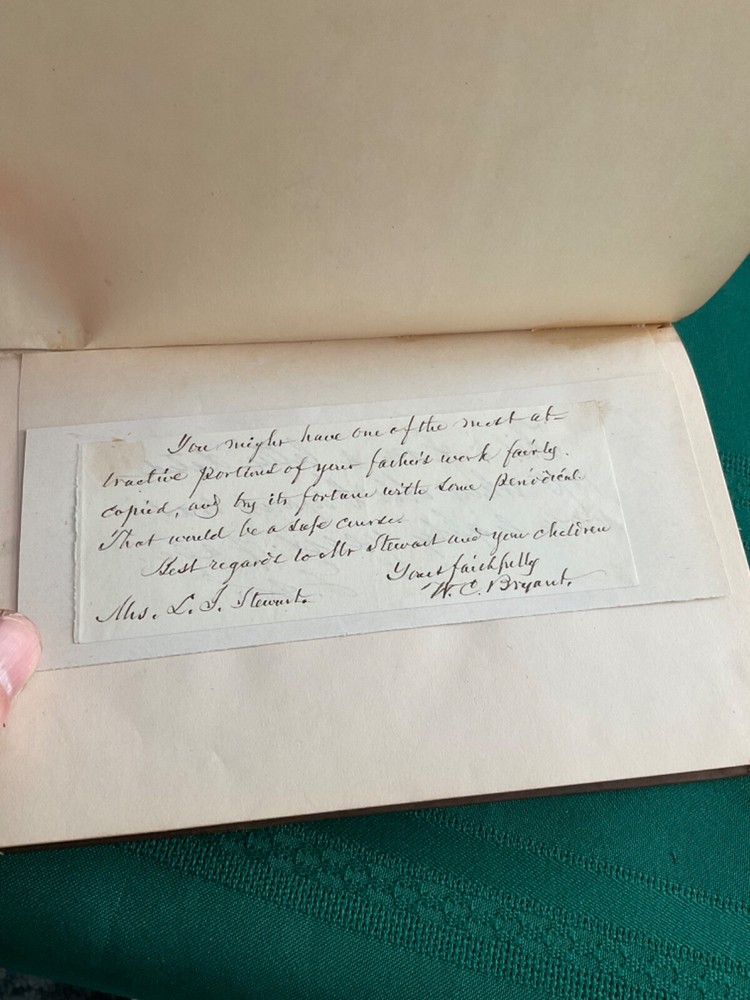 You might have one of the most at=
tractive portions of your father's work fairly
copied, and try its fortune with some periodical
That would be a safe course.
Best regards to Mr Stewart and your children
Yours faithfully
W. C. Bryant.
Mrs. L. J. Stewart.